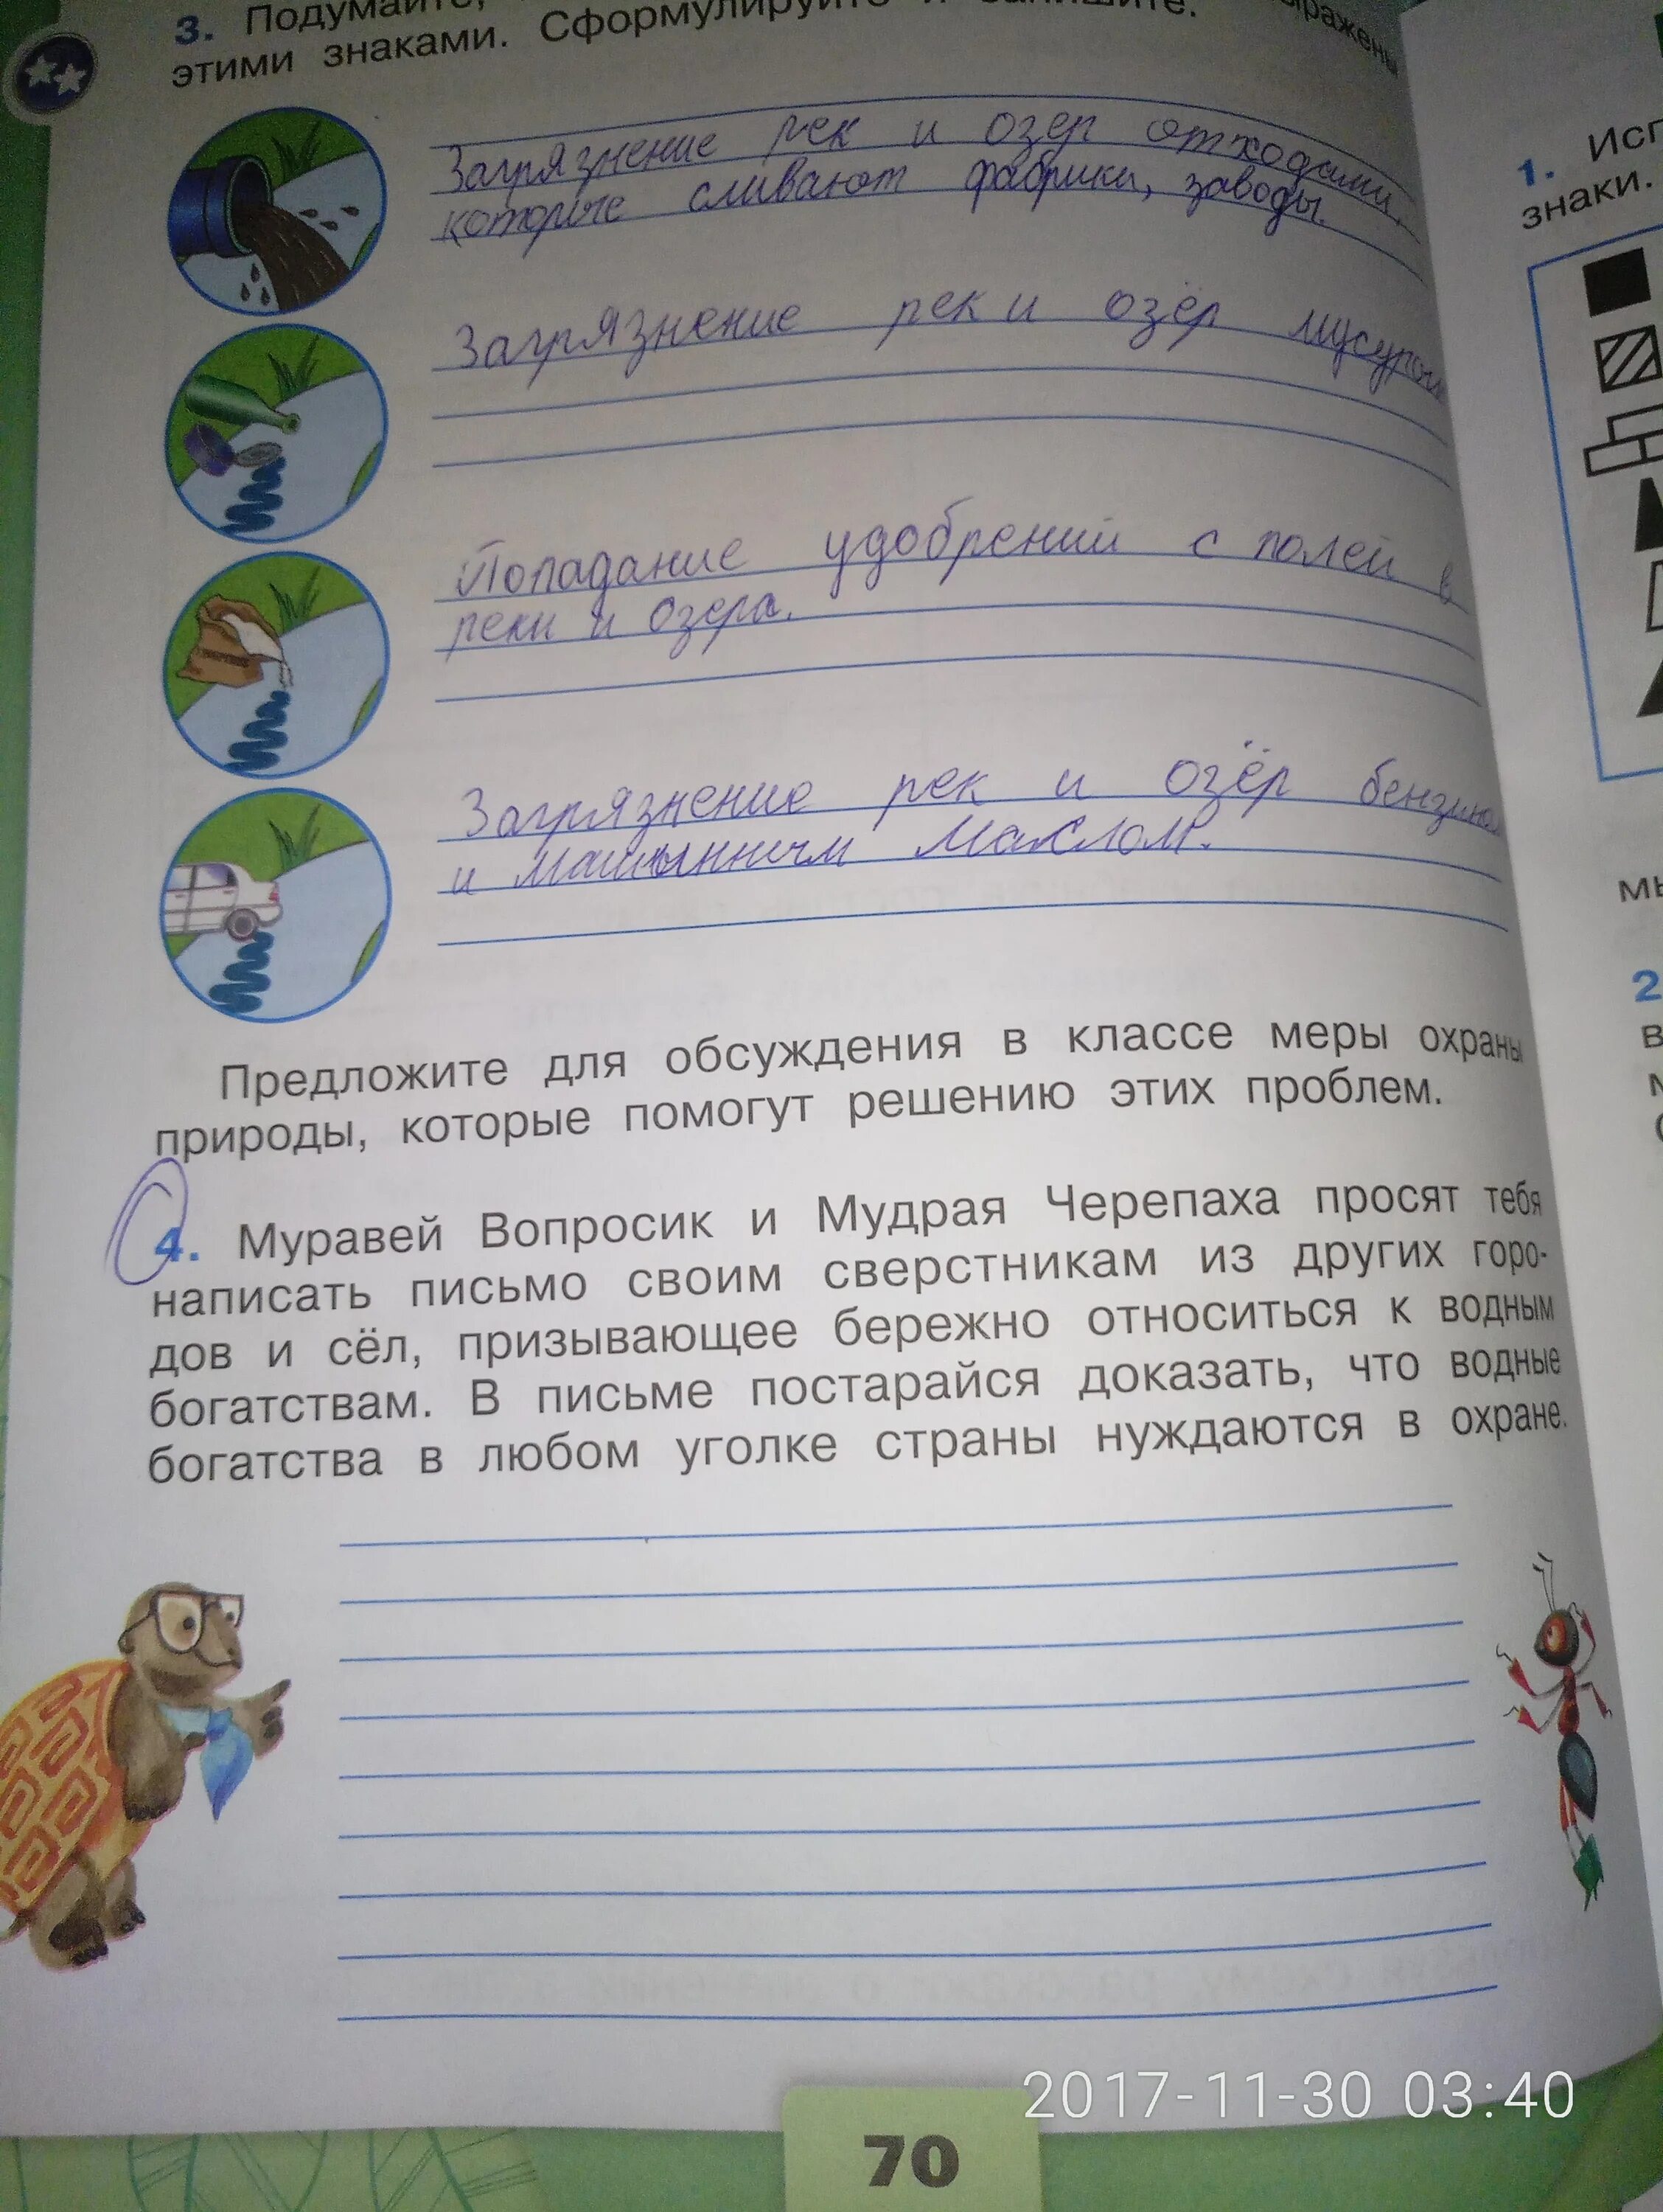 3. Подумайте,
этими знаками. Сформулируйте и запишите.
Загрязнение рек и озер отходами,
которые сливают фабрики, заводы.
Загрязнение рек и озёр мусором
Попадание удобрений с полей в
реки и озера.
Загрязнение рек и озёр бензином
и машынным маслом.
Предложите для обсуждения в классе меры охраны
природы, которые помогут решению этих проблем.
4. Муравей Вопросик и Мудрая Черепаха просят тебя
написать письмо своим сверстникам из других горо-
дов и сёл, призывающее бережно относиться к водным
богатствам. В письме постарайся доказать, что водные
богатства в любом уголке страны нуждаются в охране.
70
2017-11-30 03:40
1. Исп
знаки.
мы
2